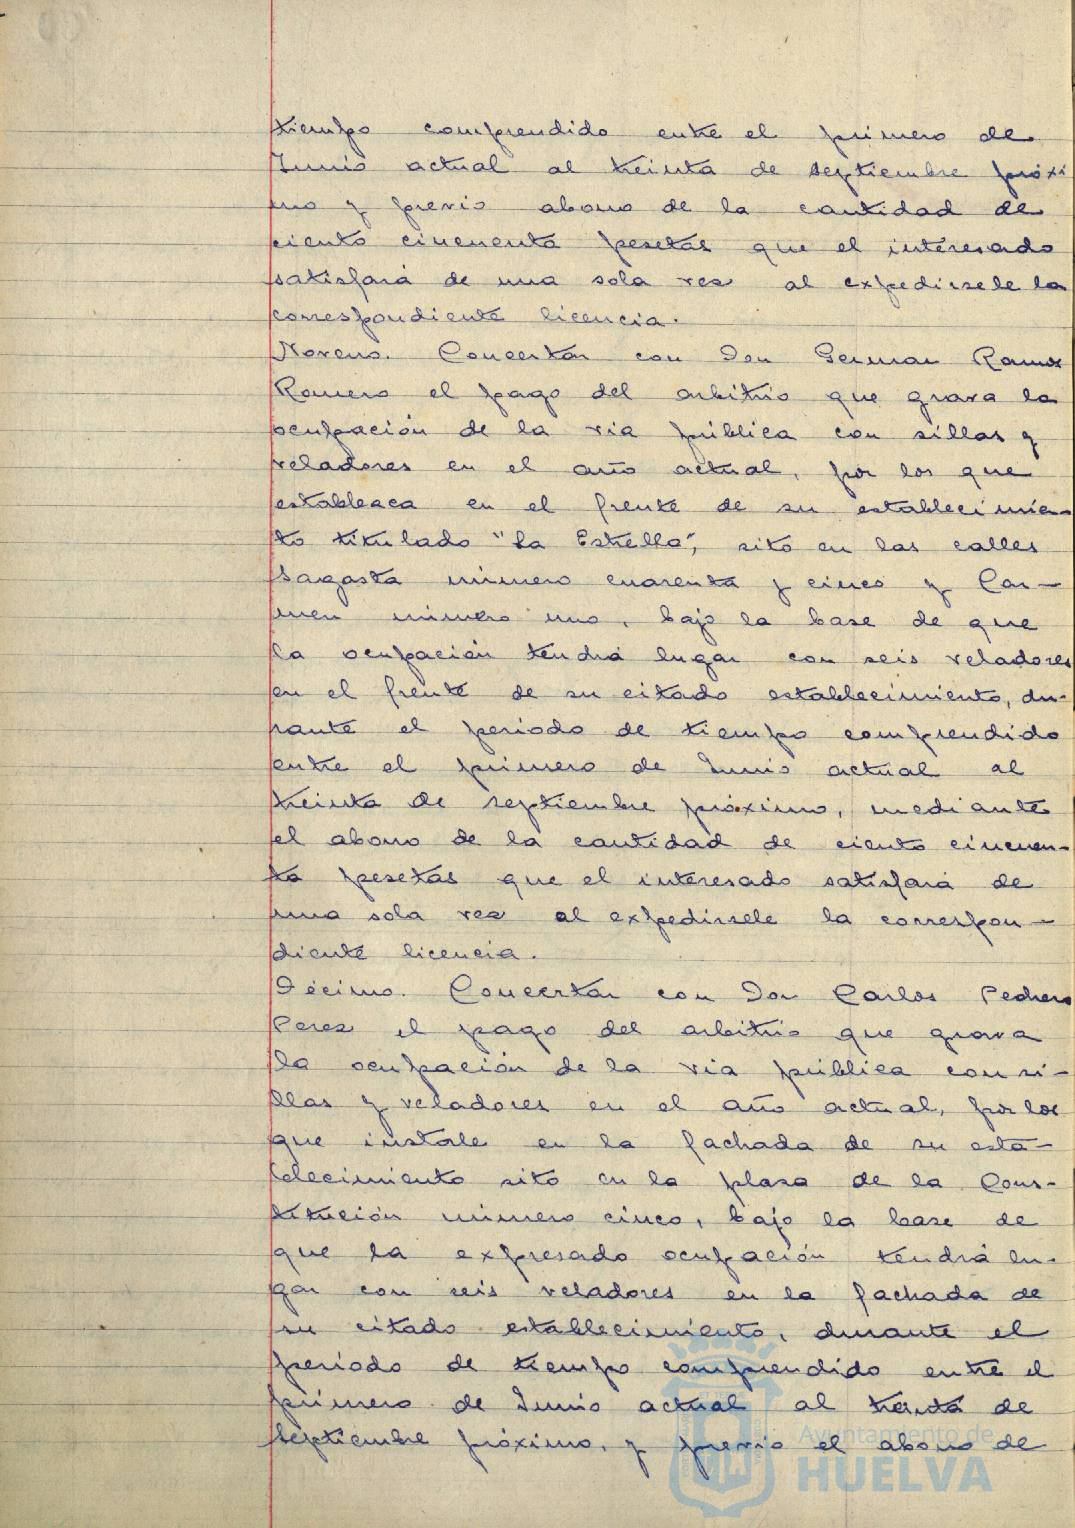 tiempo comprendido entre el primero de
Junio actual al treinta de septiembre próxi
mo y previo abono de la cantidad de
ciento cincuenta pesetas que el interesado
satisfará de una sola vez al expedirsele la
correspondiente licencia.
Noveno. Concertar con Don German Ramos
Romero el pago del arbitrio que grava la
ocupación de la via pública con sillas y
veladores en el año actual, por los que
establezca en el frente de su establecimien-
to titulado "La Estrella", sito en las calles
Sagasta número cuarenta y cinco y Car-
men número uno, bajo la base de que
la ocupación tendrá lugar con seis veladores
en el frente de su citado establecimiento, du-
rante el periodo de tiempo comprendido
entre el primero de Junio actual al
treinta de septiembre próximo, mediante
el abono de la cantidad de ciento cincuen-
ta pesetas que el interesado satisfará de
una sola vez al expedirsele la correspon-
diente licencia.
Décimo. Concertar con Don Carlos Pedrero
Perez el pago del arbitrio que grava
la ocupación de la via pública con si-
llas y veladores en el año actual, por los
que instale en la fachada de su esta-
blecimiento sito en la plaza de la Cons-
titución número cinco, bajo la base de
que la expresado ocupación tendrá lu-
gar con seis veladores en la fachada de
su citado establecimiento, durante el
periodo de tiempo comprendido entre el
primero de Junio actual al treinta de
Septiembre próximo, y previo el abono de
Ayuntamiento de
HUELVA